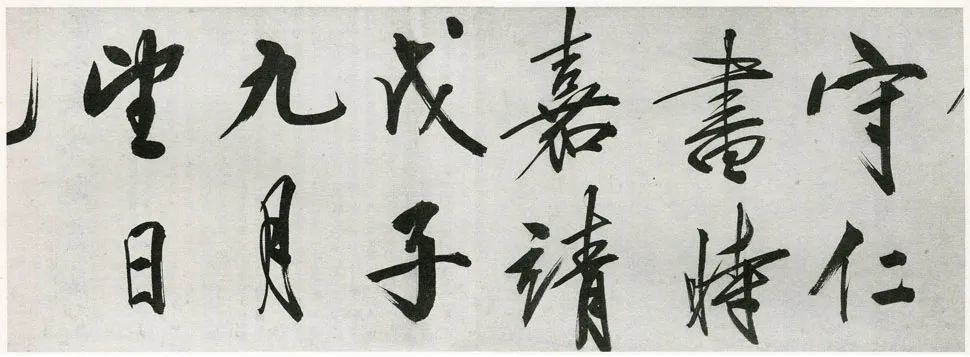 守仁
書時
嘉靖
戊子
九月
望日